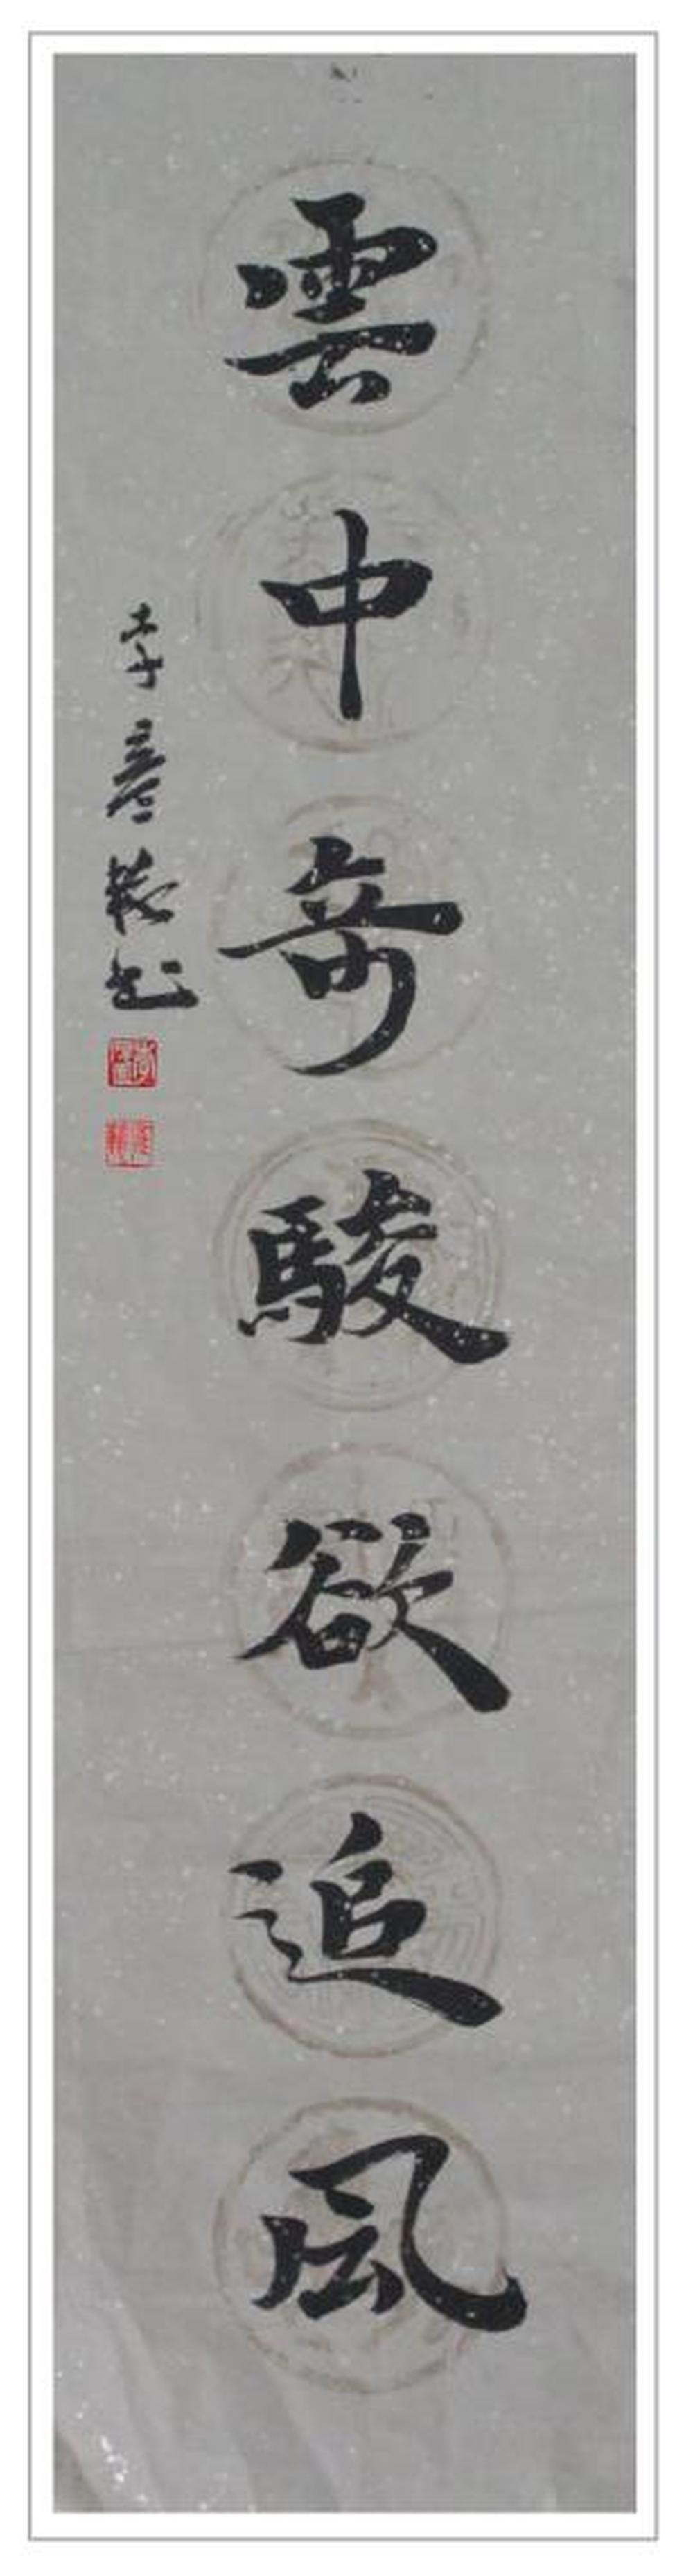 雲中奇駿欲追風
李彦
书